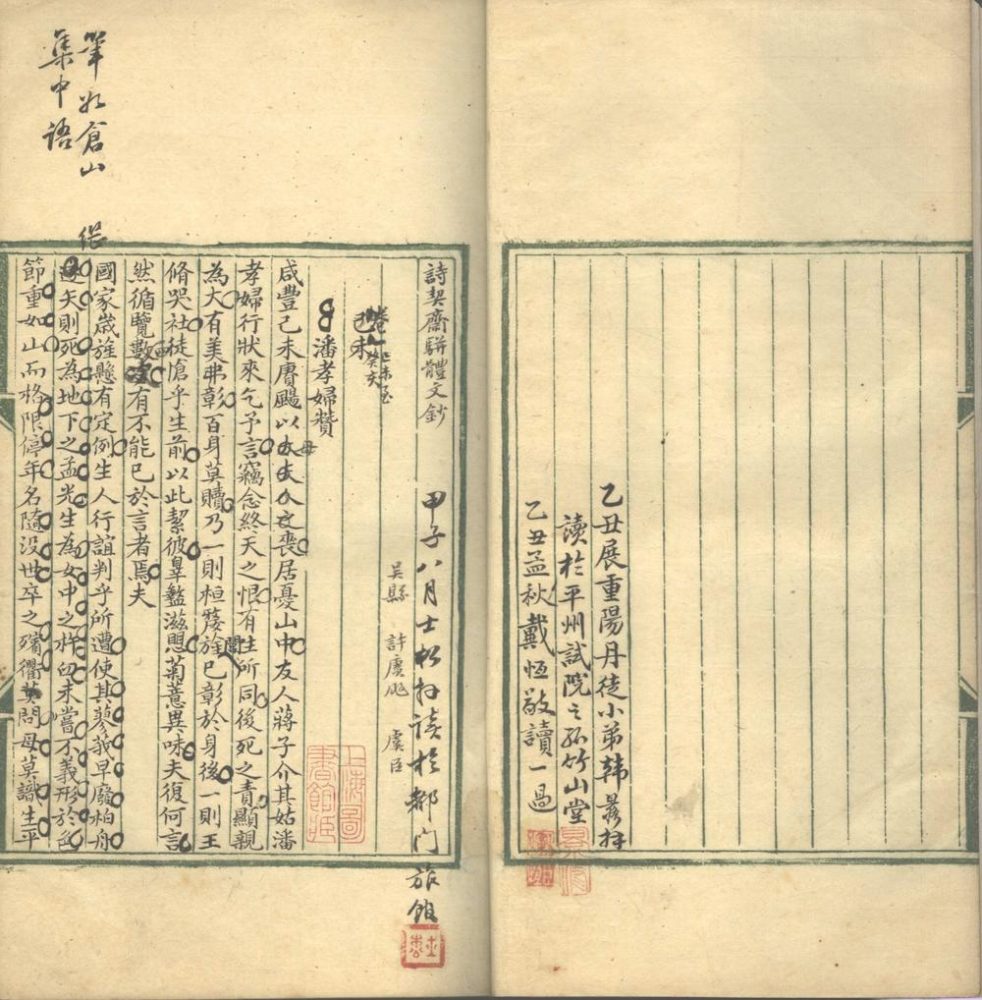 乙丑展重陽丹徒小弟韓 拜
讀於平州試院之孤竹山堂
乙丑孟秋戴恆敬讀一過
詩契齋駢體文鈔
甲子八月士松拜讀於都門旅館
吳縣 許賡颺 虞臣
卷一 己未至癸亥
己未
潘孝婦贊
咸豐己未賡颺以 母喪居憂山中友人蔣子介其姑潘
孝婦行狀來乞予言竊念終天之恨有生所同後死之責顯親
為大有美弗彰百身莫贖乃一則桓嫠 闇已彰於身後一則王
脩哭社徒愴乎生前以此絜彼辠 滋 菊薏異味夫復何言
然循覽數 有不能已於言者焉夫
國家歲旌懸有定例生人行誼判乎所遭使其蓼莪早廢柏舟
遂矣則死為地下之孟光生為女中之杵臼未嘗不義形於色
節重如山而格限停年名隨沒世卒之殯 莫問母莫識生平
筆如倉山
集中語
上海圖書館藏